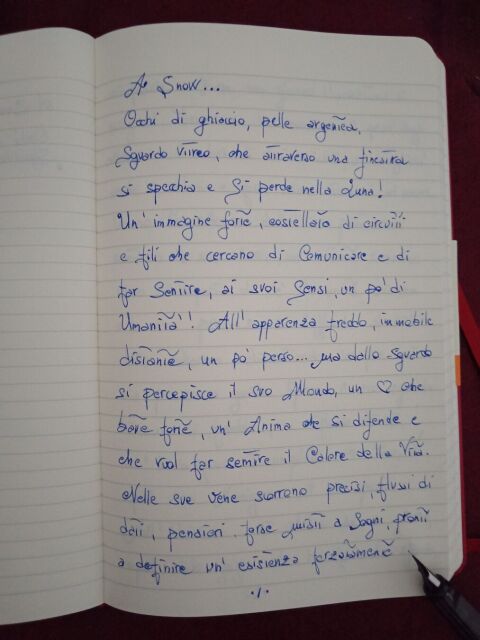 A Snow...
Occhi di ghiaccio, pelle argentea,
sguardo vitreo, che attraverso una finestra
si specchia e si perde nella Luna!
Un' immagine forte, costellata di circuiti
e fili che cercano di Comunicare e di
far Sentire, ai suoi Sensi, un pò di
Umanità! All' apparenza freddo, immobile
distante, un pò perso... ma dallo sguardo
si percepisce il suo Mondo, un ♡ che
batte forte, un' Anima che si difende e
che vuol far sentire il Calore della Vita.
Nelle sue vene scorrono precisi, flussi di
dati, pensieri forse misti a Sogni, pronti
a definire un' esistenza forzatamente
.1.